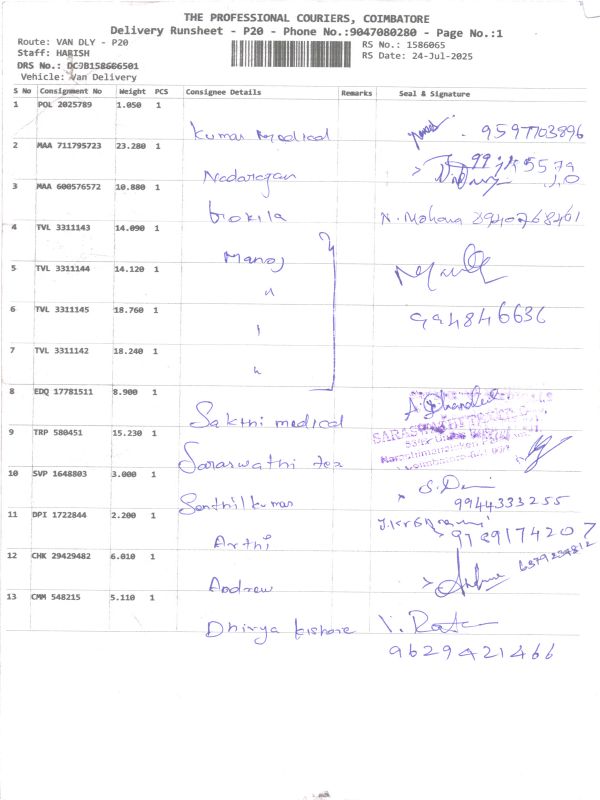 THE PROFESSIONAL COURIERS, COIMBATORE
Delivery Runsheet - P20 - Phone No.:9047080280 - Page No.:1
Route: VAN DLY - P20
RS No.: 1586065
Staff: HARISH
RS Date: 24-Jul-2025
DRS No.: DCJB158606501
Vehicle: Van Delivery
S No Consignment No Weight PCS Consignee Details Remarks Seal & Signature
1 POL 2025789 1.050 1
Kumar Medical 9597703896
2 MAA 711795723 23.280 1
Nadarajan
3 MAA 600576572 10.880 1
Gokila N. Mohana 8940768461
4 TVL 3311143 14.090 1
Manoj
5 TVL 3311144 14.120 1
"
6 TVL 3311145 18.760 1
994846636
7 TVL 3311142 18.240 1
8 EDQ 17781511 8.900 1
Sakthi medical
9 TRP 580451 15.230 1
Saraswathi tex
10 SVP 1648803 3.000 1
Senthilkumar 9944333255
11 DPI 1722844 2.200 1
Arthi 9789174207
12 CHK 29429482 6.010 1
Andrew 6379234812
13 CMM 548215 5.110 1
Dhivya kishore
9629421466